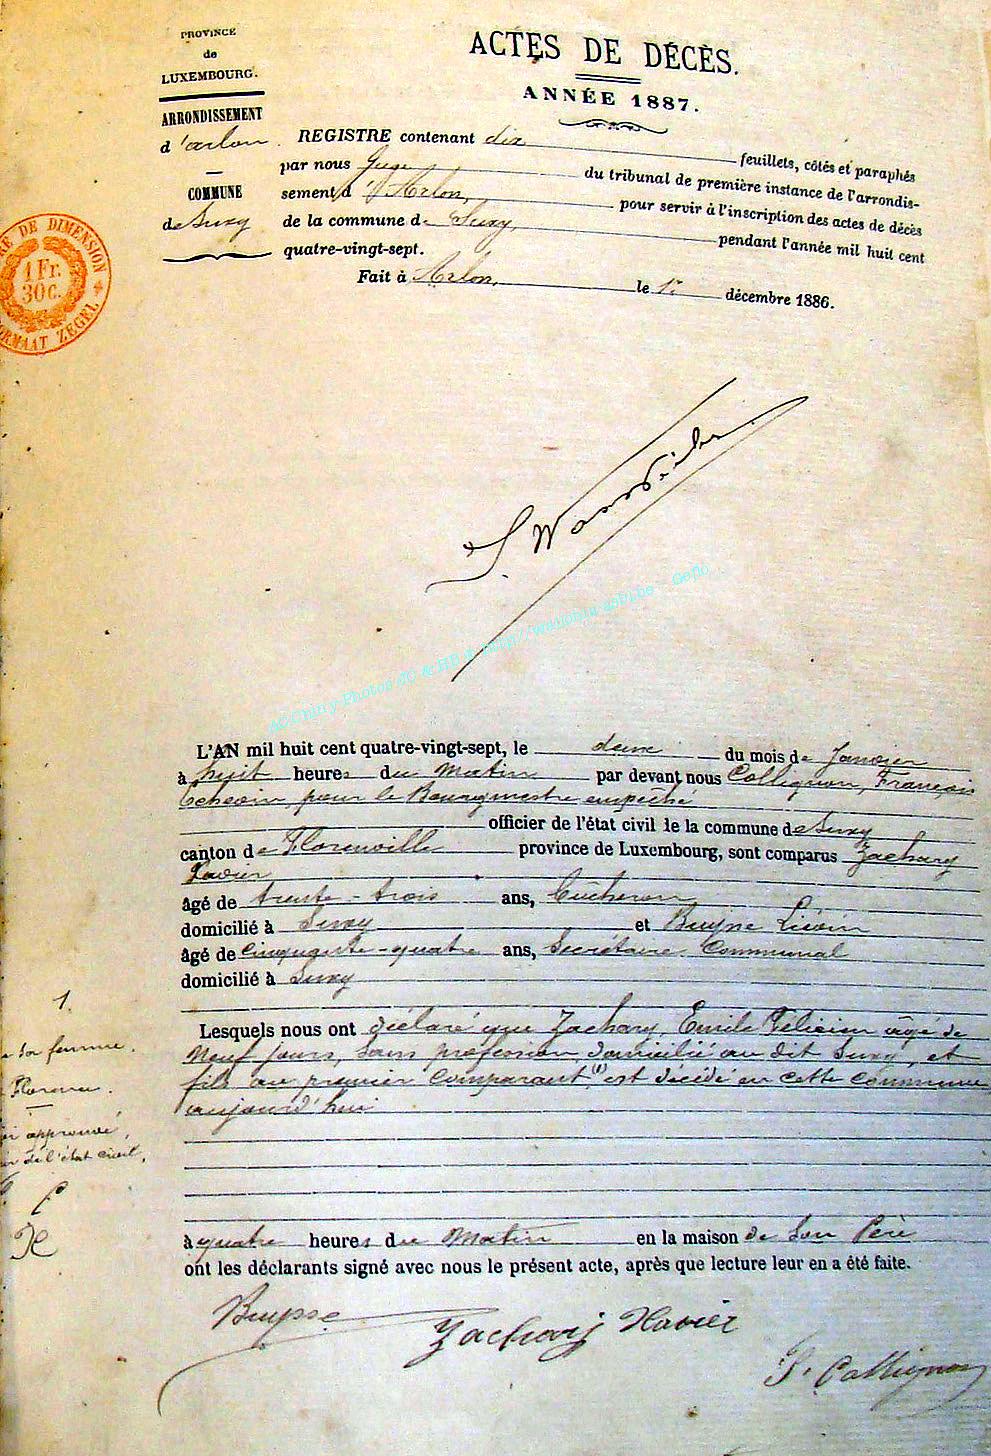 PROVINCE
de
LUXEMBOURG.
ARRONDISSEMENT
d'arlon
COMMUNE
de Suxy
ACTES DE DÉCÈS.
ANNÉE 1887.
REGISTRE contenant dix feuillets, côtés et paraphés
par nous Juge du tribunal de première instance de l'arrondis-
sement d'Arlon, pour servir à l'inscription des actes de décès
de la commune de Suxy, pendant l'année mil huit cent
quatre-vingt-sept.
Fait à Arlon, le 1r décembre 1886.
RE DE DIMENSION
1 Fr.
30c.
ORMAAT ZEGEL
AC Chiny Photos JC & HB
L'AN mil huit cent quatre-vingt-sept, le deux du mois de Janvier
à huit heures du Matin par devant nous Collignon, François
Echevin pour le Bourgmestre empêché
officier de l'état civil de la commune de Suxy
canton de Florenville province de Luxembourg, sont comparus Zachary
Xavier
âgé de trente-trois ans, Bûcheron
domicilié à Suxy et Buysse Liévin
âgé de cinquante-quatre ans, Secrétaire Communal
domicilié à Suxy
Lesquels nous ont déclaré que Zachary, Emile Félicien âgé de
Neuf jours, sans profession, domicilié au dit Suxy, et
fils au premier Comparant (1) est décédé en cette commune
aujourd'hui
1.
sa femme.
Florence.
approuvé,
de l'état civil,
à quatre heures du Matin en la maison de Son Père
ont les déclarants signé avec nous le présent acte, après que lecture leur en a été faite.
Buysse
Zachary Xavier
F. Collignon